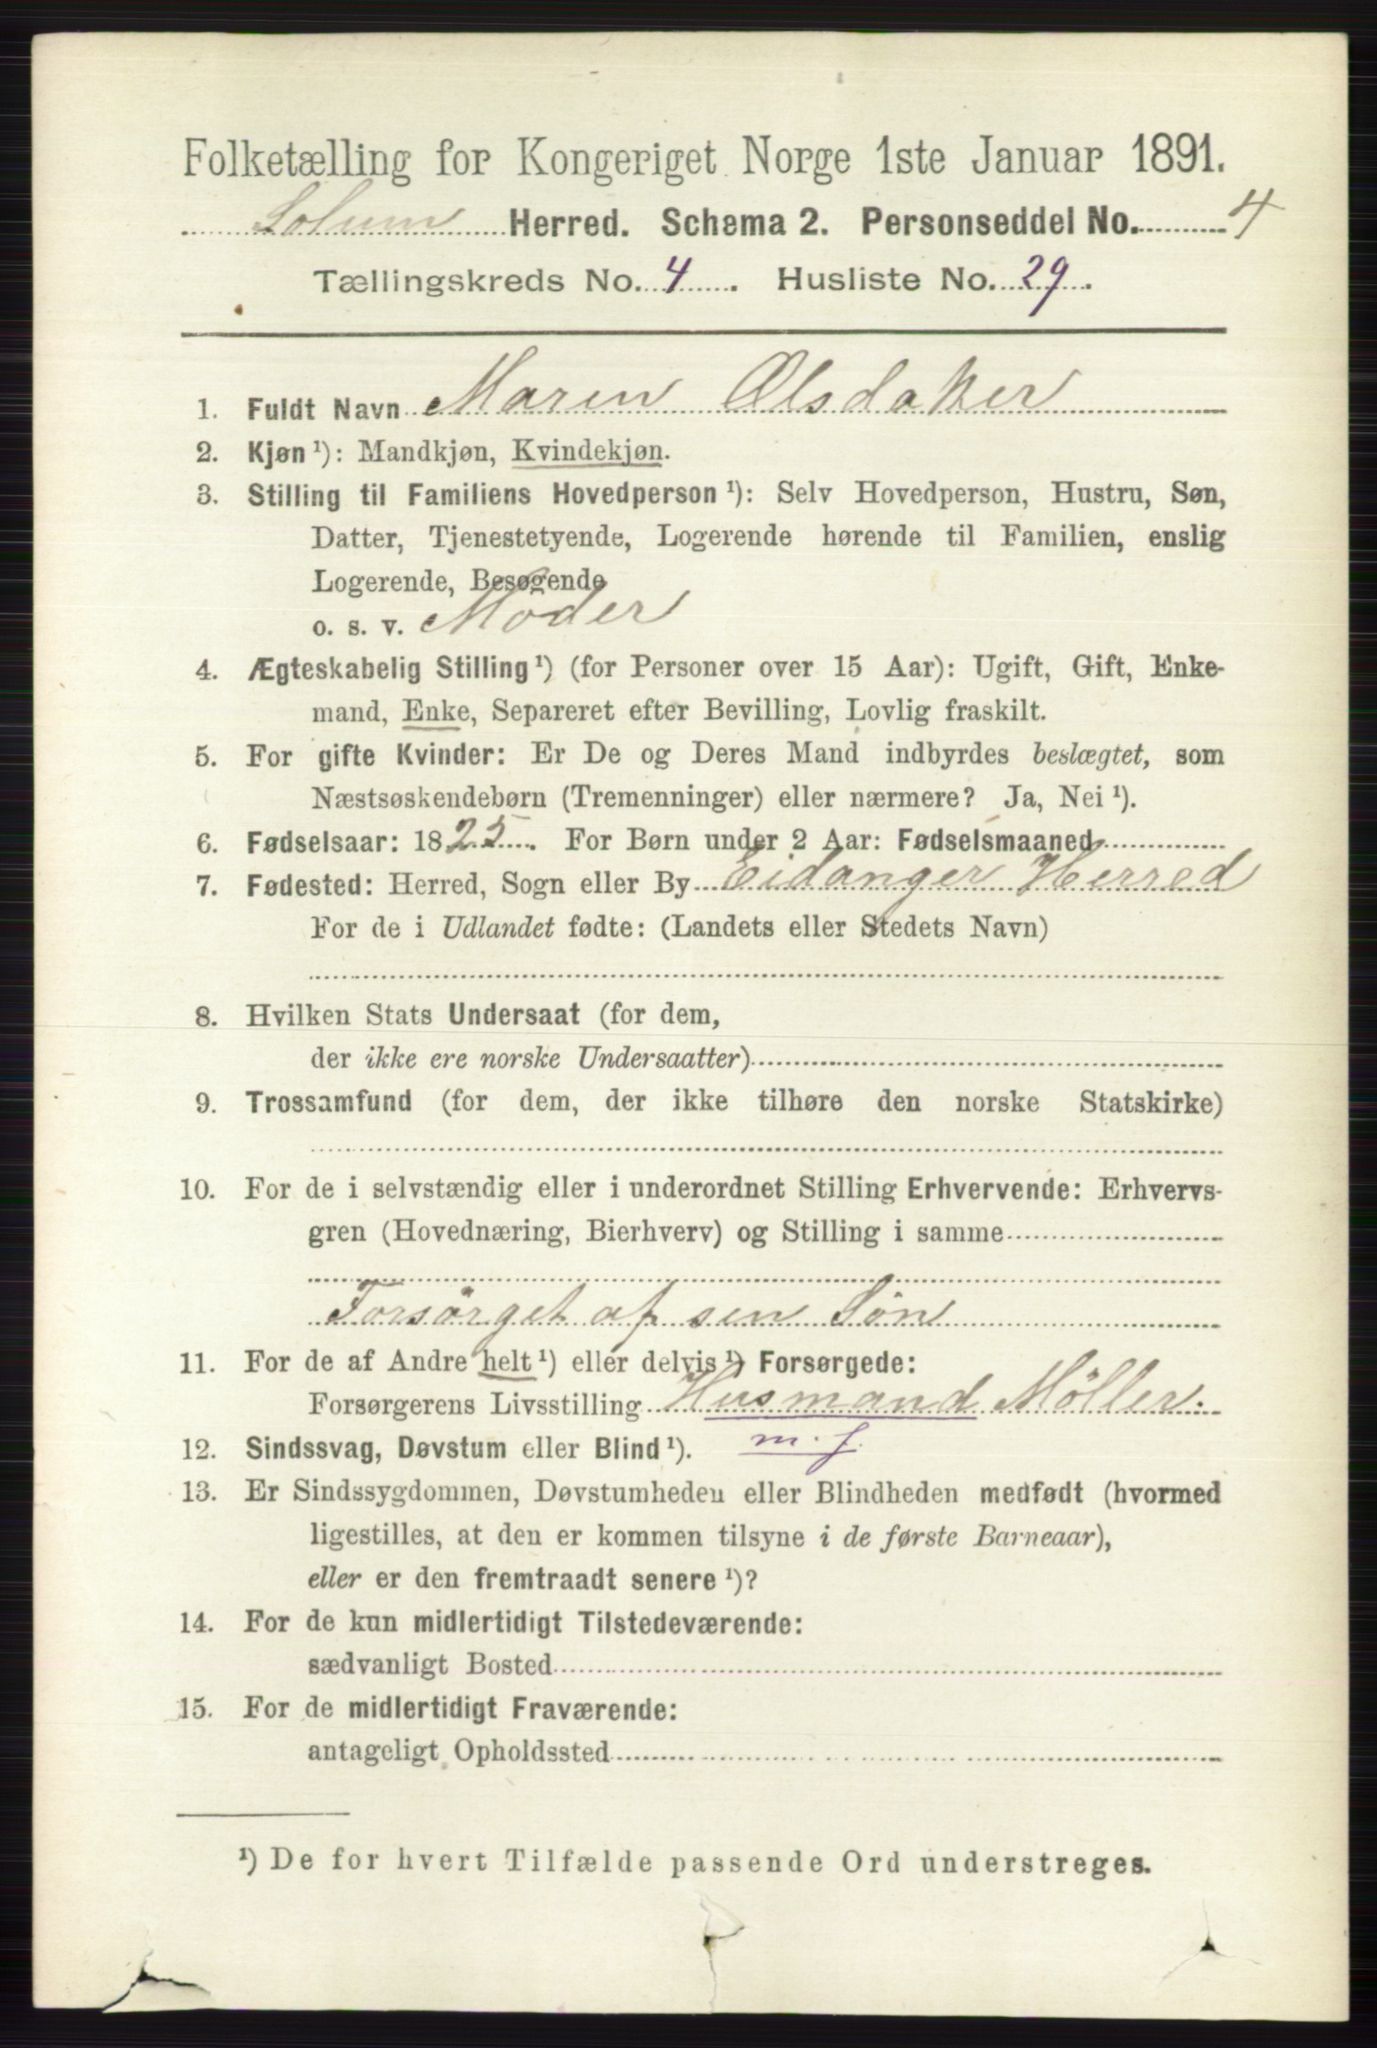 Folketælling for Kongeriget Norge 1ste Januar 1891.
Solum Herred. Schema 2. Personseddel No. 4
Tællingskreds No. 4. Husliste No. 29.
1. Fuldt Navn Maren Ølsdaker
2. Kjøn ¹): Mandkjøn, Kvindekjøn.
3. Stilling til Familiens Hovedperson ¹): Selv Hovedperson, Hustru, Søn,
Datter, Tjenestetyende, Logerende hørende til Familien, enslig
Logerende, Besøgende
o. s. v. Moder
4. Ægteskabelig Stilling ¹) (for Personer over 15 Aar): Ugift, Gift, Enke-
mand, Enke, Separeret efter Bevilling, Lovlig fraskilt.
5. For gifte Kvinder: Er De og Deres Mand indbyrdes beslægtet, som
Næstsøskendebørn (Tremenninger) eller nærmere? Ja, Nei ¹).
6. Fødselsaar: 1825. For Børn under 2 Aar: Fødselsmaaned
7. Fødested: Herred, Sogn eller By Eidanger Herred
For de i Udlandet fødte: (Landets eller Stedets Navn)
8. Hvilken Stats Undersaat (for dem,
der ikke ere norske Undersaatter)
9. Trossamfund (for dem, der ikke tilhøre den norske Statskirke)
10. For de i selvstændig eller i underordnet Stilling Erhvervende: Erhvervs-
gren (Hovednæring, Bierhverv) og Stilling i samme
Forsörget af sen Sön
11. For de af Andre helt ¹) eller delvis ¹) Forsørgede:
Forsørgerens Livsstilling Husmand Möller.
12. Sindssvag, Døvstum eller Blind ¹). m. f.
13. Er Sindssygdommen, Døvstumheden eller Blindheden medfødt (hvormed
ligestilles, at den er kommen tilsyne i de første Barneaar),
eller er den fremtraadt senere ¹)?
14. For de kun midlertidigt Tilstedeværende:
sædvanligt Bosted
15. For de midlertidigt Fraværende:
antageligt Opholdssted
¹) De for hvert Tilfælde passende Ord understreges.